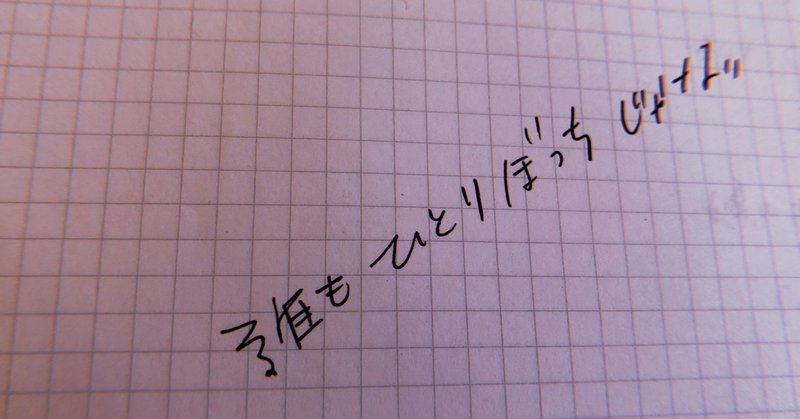 誰もひとりぼっちじゃない